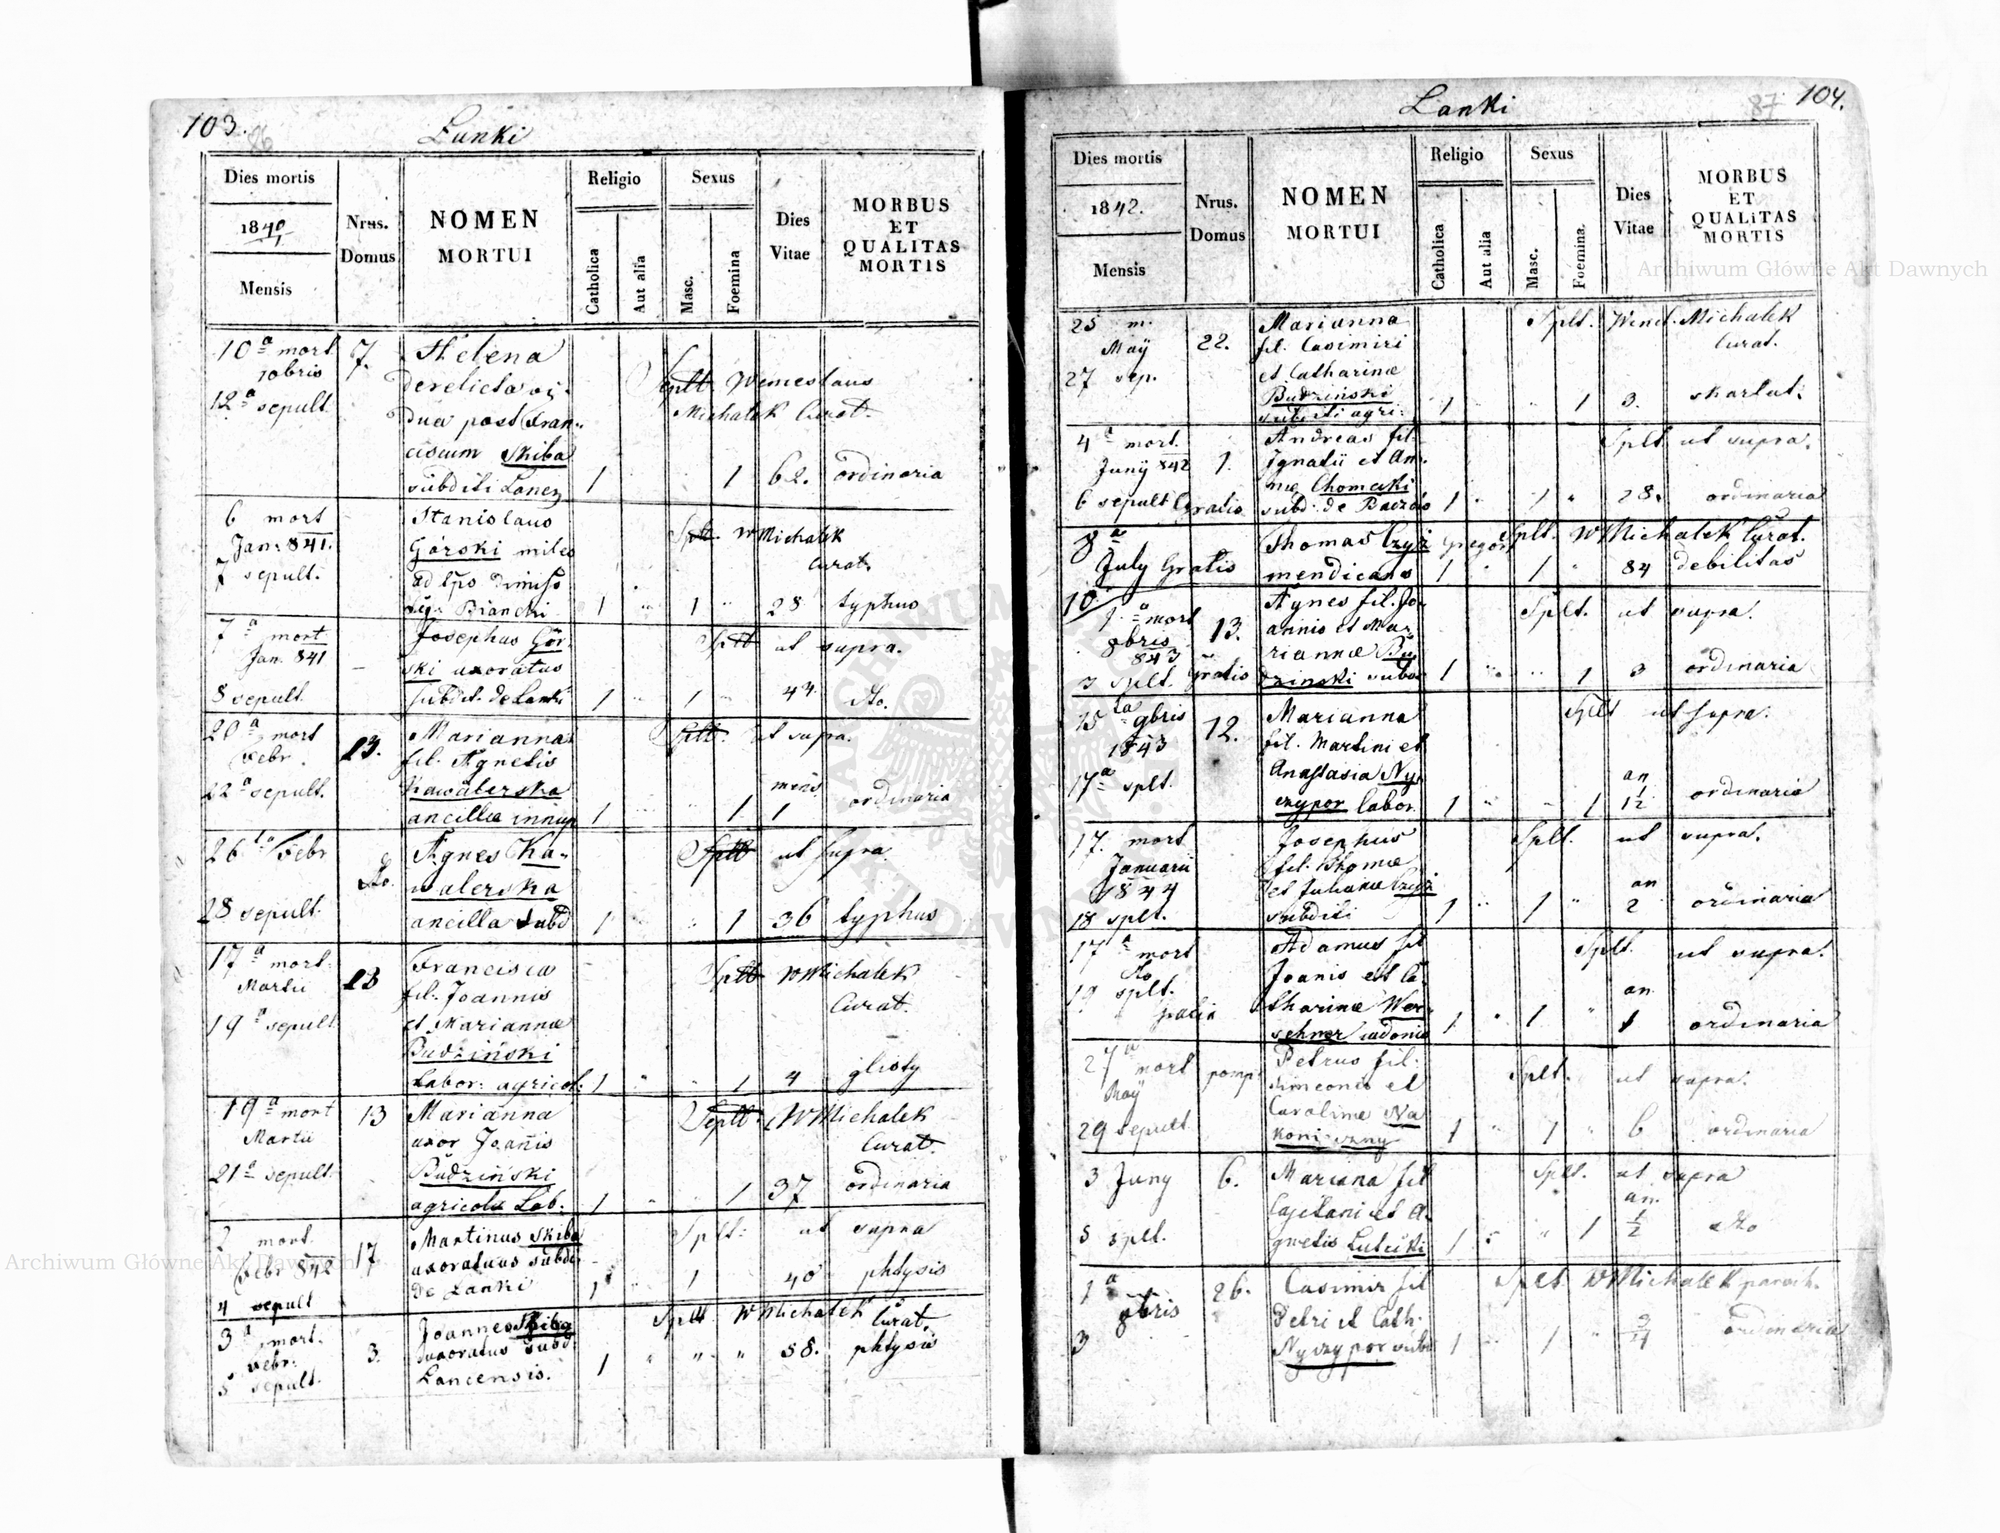 103.
86
Lanki
Dies mortis
1840/1
Mensis
Nrus.
Domus
NOMEN
MORTUI
Religio
Catholica
Aut alia
Sexus
Masc.
Foemina
Dies
Vitae
MORBUS
ET
QUALITAS
MORTIS
10a mort 7. Helena
10bris derelicta vi- Splt Wenceslaus
12a sepult. dua post Fran- Michalek Curat.
ciscum Skiba
subditi Lancz 1 1 62. ordinaria
6 mort Stanislaus Splt. W Michalek
Jan: 841. Górski miles Curat.
7 sepult.
1 1 28 typhus
7a mort Josephus Gór- Splt ut supra.
Jan. 841 ski uxoratus
8 sepult subdit. de Lanki 1 1 44. dto.
20a mort 13. Marianna Splt. ut supra.
Febr. fil. Agnetis
22a sepult. Kawalerska mens.
ancillae innup 1 1 1 ordinaria
26ta Febr dto. Agnes Ka- Splt ut supra
walerska
28 sepult. ancilla subd 1 1 36 typhus
17a mort. 13 Francisca Splt W Michalek
Martii fil. Joannis Curat.
19a sepult. et Mariannae
Budziński
Labor: agricol: 1 1 4 glisty
19a mort 13 Marianna Splt. W Michalek
Martii uxor Joanis Curat.
21a sepult. Budziński
agricola Lab. 1 1 37 ordinaria
2 mort. 17 Martinus Skiba Splt. ut supra
Febr 842 uxoratus subd.
4 sepult de Lanki 1 1 40 phtysis
3a mort. 3. Joannes Skiba Splt W Michalek Curat.
Febr. uxoratus subd.
5 sepult. Lancensis. 1 58. phtysis
Lanki
87
104.
Dies mortis
1842.
Mensis
Nrus.
Domus
NOMEN
MORTUI
Religio
Catholica
Aut alia
Sexus
Masc.
Foemina.
Dies
Vitae
MORBUS
ET
QUALITAS
MORTIS
25 m. 22. Marianna Splt. Wencl. Michalek
Maÿ fil. Casimiri Curat.
27 sep. et Catharinae
Budziński
subditi agri: 1 1 3. skarlat:
4a mort. 1. Andreas fil. Splt ut supra.
Junÿ 842 Ignatii et An-
nae Chomicki
6 sepult Gratis subd: de 1 1 28. ordinaria
8a Thomas Czyż Splt. W Michalek Curat.
July Gratis mendicans 1 1 84 debilitas
10.
1a mort 13. Agnes fil. Jo- Splt. ut supra.
8bris annis et Ma-
843 riannae Bu-
3 splt. Gratis dzinski subd 1 1 3 ordinaria
15ta 9bris 12. Marianna Splt ut supra.
1843 fil. Martini et
17a splt. Anastasia Ny- an
czypor labor. 1 1 1/2 ordinaria
17. mort Josephus Splt. ut supra.
Januarii fil. Thomae
1844 et Julianae Czyż an
18 splt. subditi 1 1 2 ordinaria
17a mort Adamus fil Splt. ut supra.
dto Joanis et Ca-
19 splt. tharinae Wer- an
schner 1 1 1 ordinaria
27a mort Petrus fil. Splt. ut supra.
Maÿ Simeonis et
Carolinae Na
29 sepult koniczny 1 1 6 ordinaria
3 Juny 6. Mariana fil Splt. ut supra
Cajetani et A- an.
5 splt. gnetis 1 1 1/2 dto
1a 26. Casimir fil Splt. W Michalek paroch.
9bris Petri et Cath.
3 Nyczypor subd 1 1 ordinaria
Archiwum Główne Akt Dawnych
Archiwum Główne Akt Dawnych